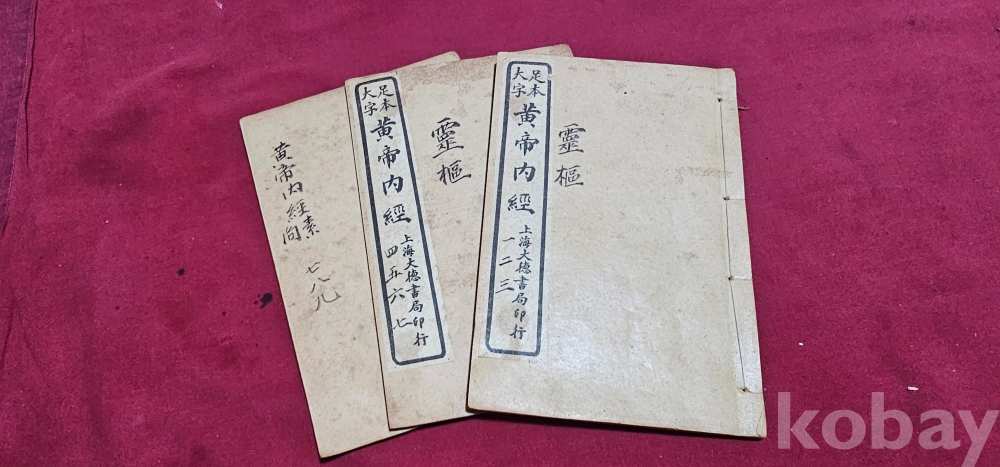 靈樞
足本
大字
黄帝内經
上海大德書局印行
一二三
靈樞
足本
大字
黄帝内經
上海大德書局印行
四五六七
黄帝内經素問
七八九
kobay